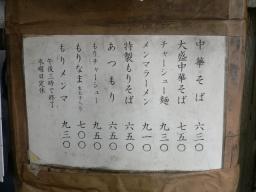 中華そば 六三〇
大盛中華そば 七五〇
チャーシュー麺 九三〇
メンマラーメン 九一〇
特製もりそば 六五〇
あつもり 六五〇
もりチャーシュー 九五〇
もりなま
もりメンマ 九三〇
午後三時で終了
水曜日定休